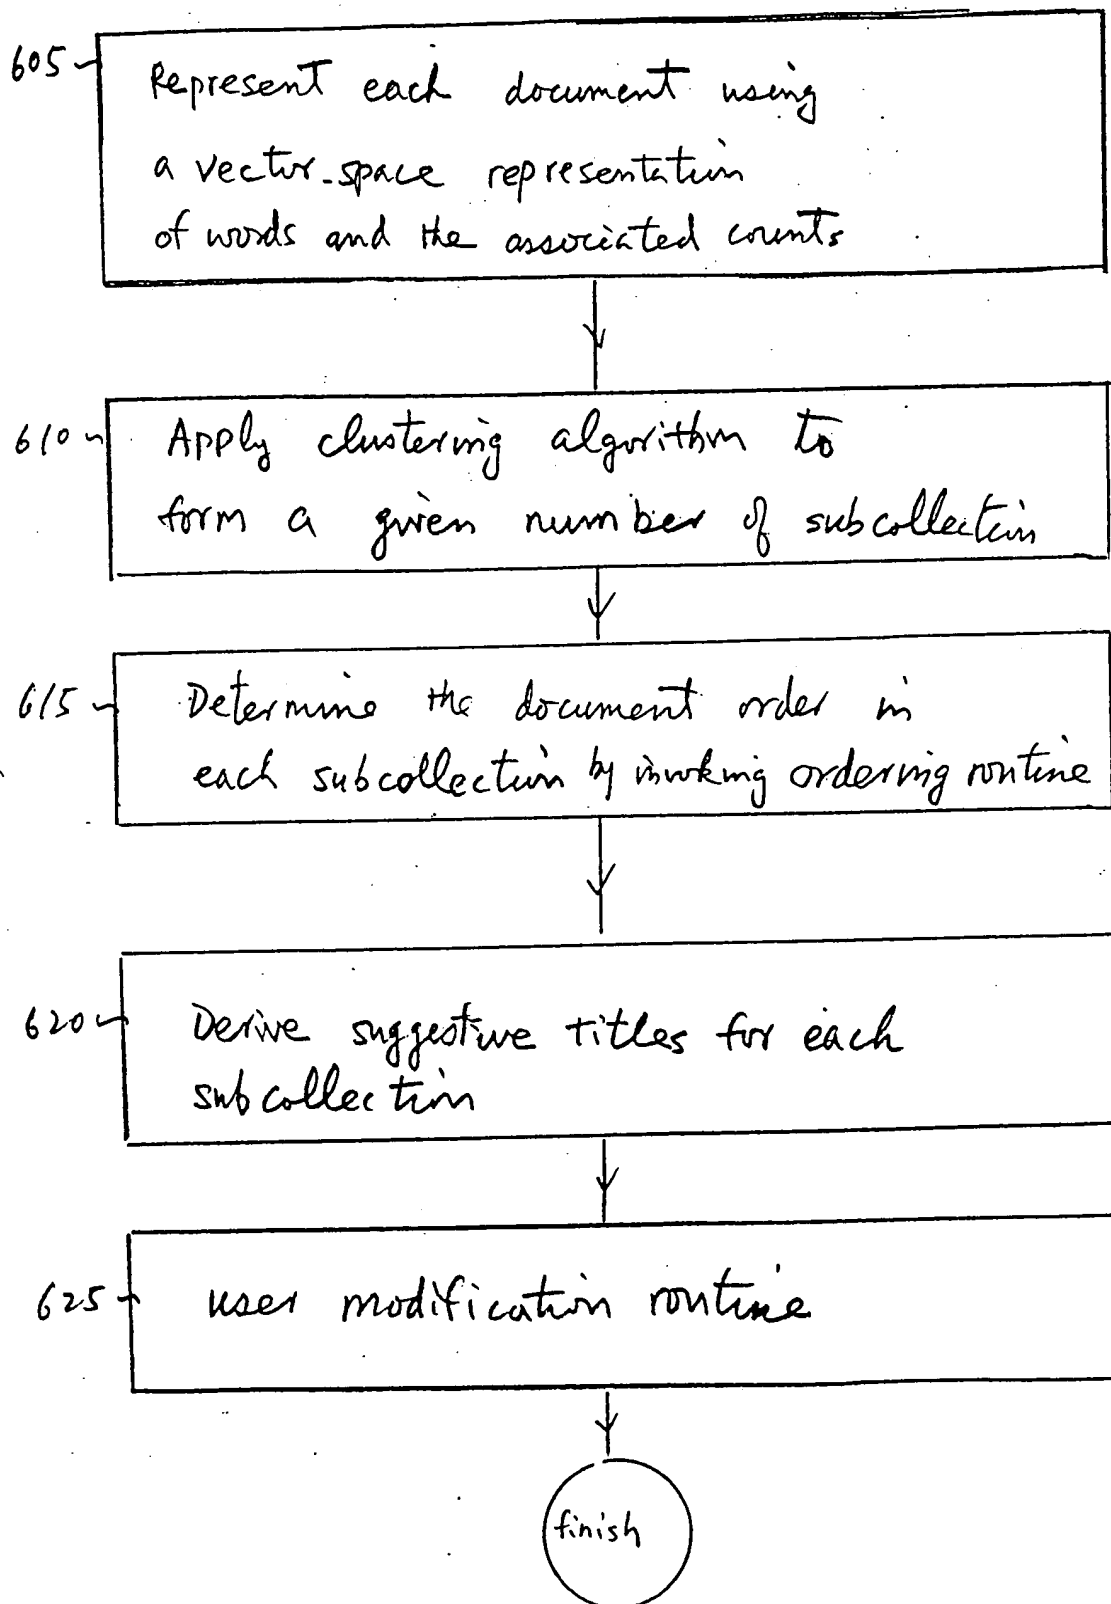 605
Represent each document using
a vector-space representation
of words and the associated counts
610
Apply clustering algorithm to
form a given number of subcollection
615
Determine the document order in
each subcollection by invoking ordering routine
620
Derive suggestive titles for each
subcollection
625
user modification routine
finish